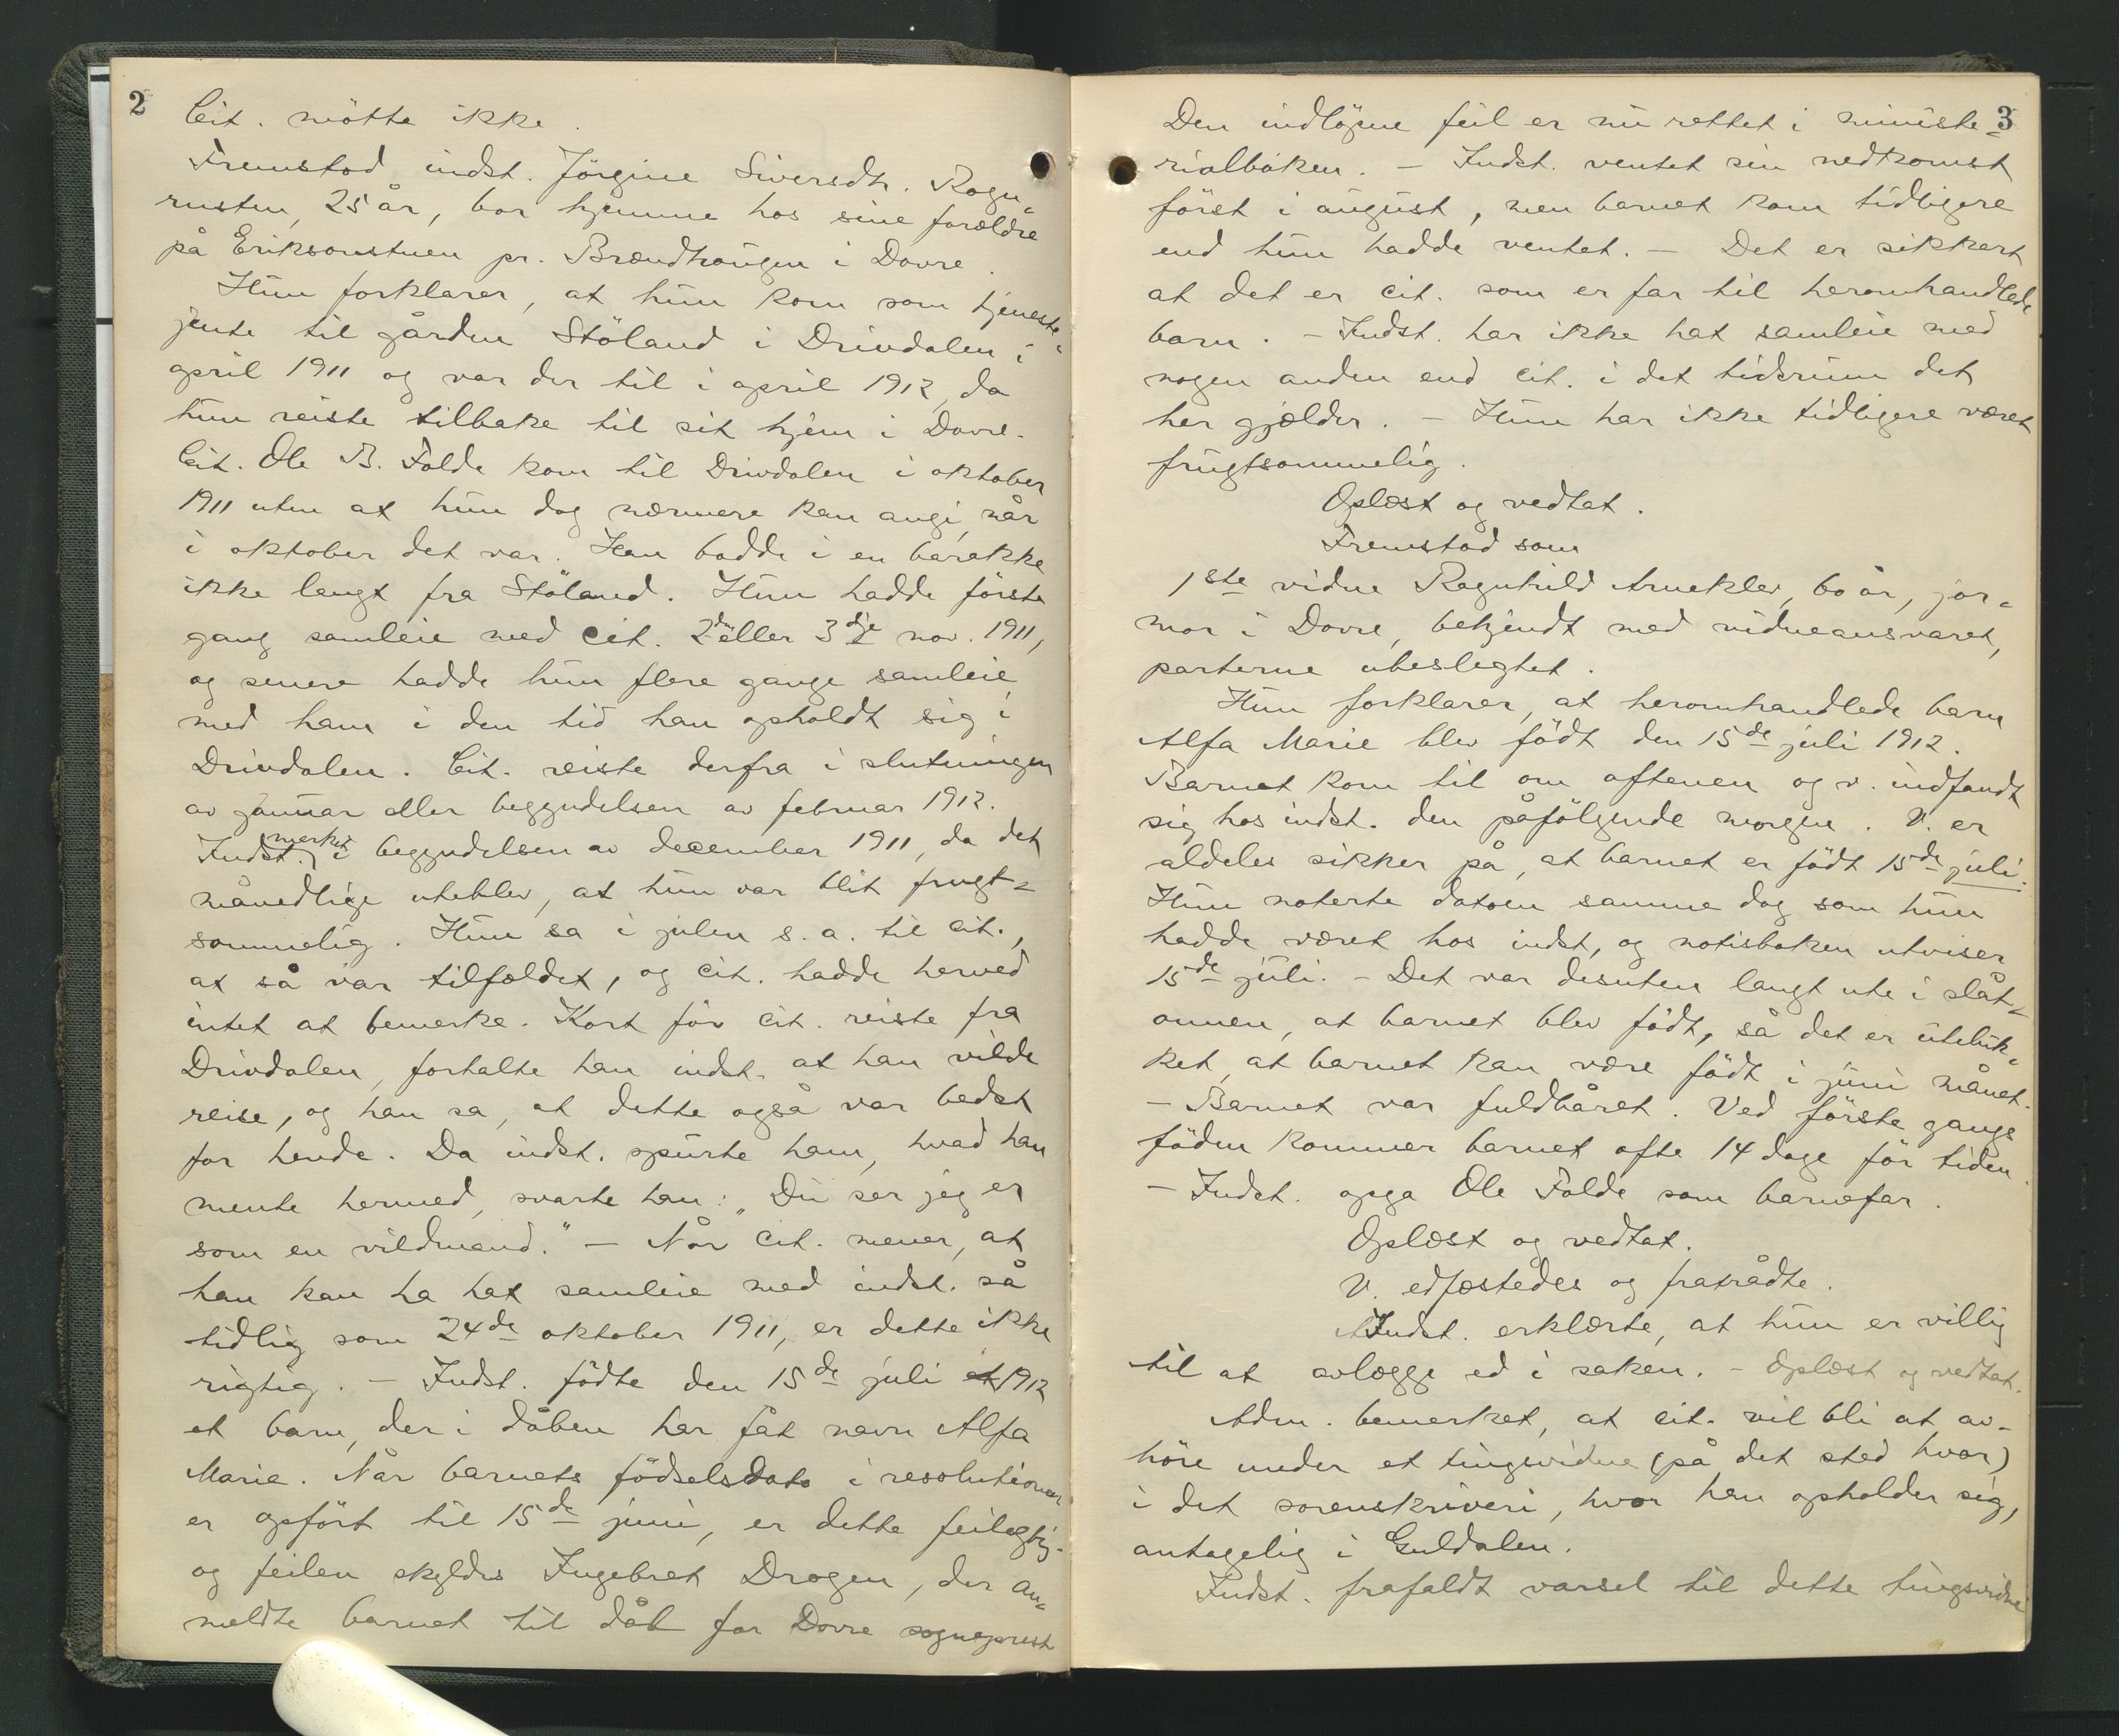 2
Cit. mötte ikke.
Fremstod indst. Jörgine Siversdtr. Rogn-
rusten, 25 år, bor hjemme hos sine forældre
på Eriksonstuen pr. Brændhaugen i Dovre.
Hun forklarer, at hun kom som tjeneste-
jente til gården Stöland i Drivdalen i
april 1911 og var der til i april 1912, da
hun reiste tilbake til sit hjem i Dovre.
Cit. Ole B. Folde kom til Drivdalen i oktober
1911 uten at hun dog nærmere kan angi, når
i oktober det var. Han bodde i en barakke
ikke langt fra Stöland. Hun hadde första
gang samleie med cit. 2den eller 3dje nov. 1911,
og senere hadde hun flere gange samleie
med ham i den tid han opholdt sig i
Drivdalen. Cit. reiste derfra i slutningen
av januar eller begyndelsen av februar 1912.
Indst. merket i begyndelsen av december 1911, da det
månedlige uteblev, at hun var blit frugt-
sommelig. Hun sa i julen s.a. til cit.,
at så var tilfældet, og cit. hadde herved
intet at bemerke. Kort för cit. reiste fra
Drivdalen, fortalte han indst. at han vilde
reise, og han sa, at dette også var bedst
for hende. Da indst. spurte ham, hvad han
mente hermed, svarte han: "Du ser jeg er
som en vildmand." – Når cit. mener, at
han kan ha hat samleie med indst. så
tidlig som 24de oktober 1911, er dette ikke
rigtig. – Indst. födte den 15de juli et 1912
et barn, der i dåben har fåt navn Alfa
Marie. Når barnets födselsdato i resolutionen
er opfört til 15de juni, er dette feilagtig.
og feilen skyldes Ingebret Dragen, der an-
meldte barnet til dåb for Dovre sogneprest
3
Den indlöpne feil er nu rettet i ministe-
rialboken. – Indst. ventet sin nedkomst
först i august, men barnet kom tidligere
end hun hadde ventet. – Det er sikkert
at det er cit. som er far til heromhandlede
barn. – Indst. har ikke hat samleie med
nogen anden end cit. i det tidsrum det
her gjælder. – Hun har ikke tidligere været
frugtsommelig.
Oplæst og vedtat.
Fremstod som
1ste vidne Ragnhild Arneklev, 60 år, jor-
mor i Dovre, bekjendt med vidneansvaret,
parterne ubeslegtet.
Hun forklarer, at heromhandlede barn
Alfa Marie blev födt den 15de juli 1912.
Barnet kom til om aftenen og v. indfandt
sig hos indst. den påfölgende morgen. V. er
aldeles sikker på, at barnet er födt 15de juli.
Hun noterte datoen samme dag som hun
hadde været hos indst, og notisboken utviser
15de juli. – Det var desuten langt ute i slåt-
onnen, at barnet blev födt, så det er uteluk-
ket, at barnet kan være födt i juni månet.
– Barnet var fuldbåret. Ved förste gangs
föden kommer barnet ofte 14 dage för tiden.
– Indst. opga Ole Folde som barnefar.
Oplæst og vedtat.
V. edfæstedes og fratrådte.
Indst. erklærte, at hun er villig
til at avlægge ed i saken. – Oplæst og vedtat.
Adm. bemerket, at cit. vil bli at av-
höre under et tingsvidne (på det sted hvor)
i det sorenskriveri, hvor han opholder sig,
antagelig i Guldalen.
Indst. frafaldt varsel til dette tingsvidne